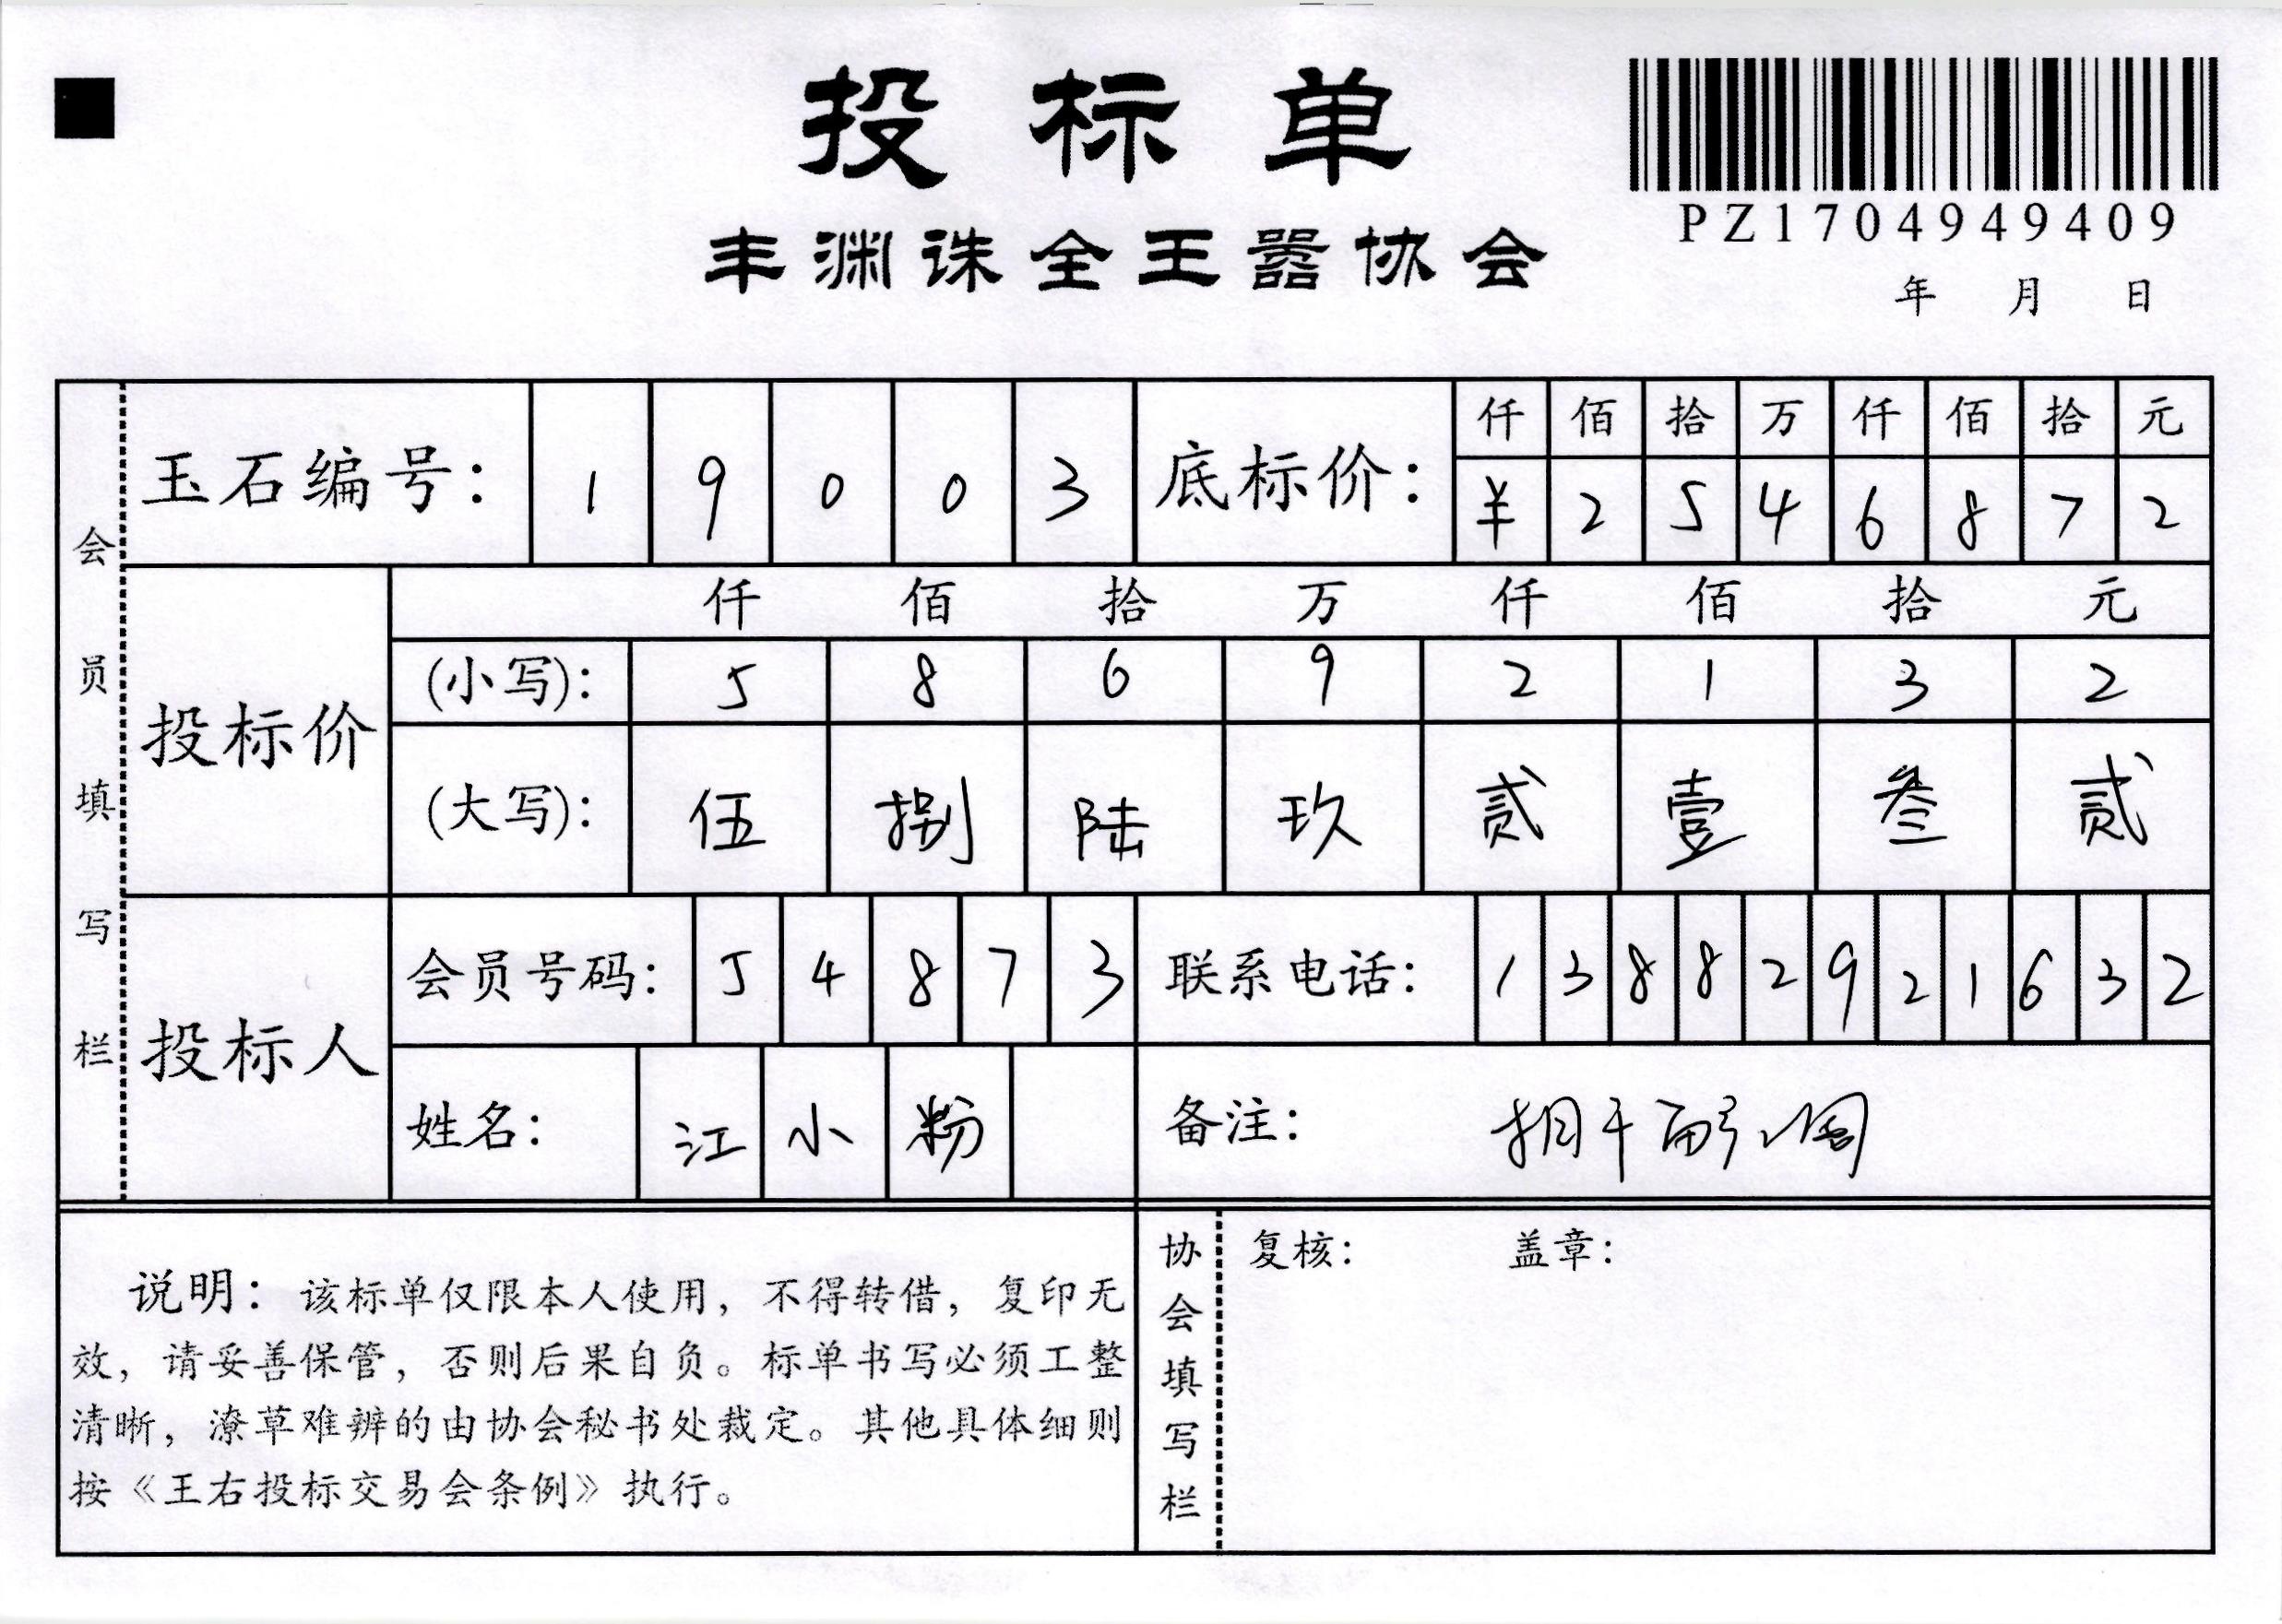 投标单
丰渊诛全王嚣协会
PZ1704949409
年 月 日
会员填写栏
玉石编号： 1 9 0 0 3
底标价： 仟 佰 拾 万 仟 佰 拾 元
¥ 2 5 4 6 8 7 2
投标价
仟 佰 拾 万 仟 佰 拾 元
(小写)： 5 8 6 9 2 1 3 2
(大写)： 伍 捌 陆 玖 贰 壹 叁 贰
投标人
会员号码： 5 4 8 7 3
联系电话： 1 3 8 8 2 9 2 1 6 3 2
姓名： 江 小 粉
备注：
说明：该标单仅限本人使用，不得转借，复印无
效，请妥善保管，否则后果自负。标单书写必须工整
清晰，潦草难辨的由协会秘书处裁定。其他具体细则
按《王右投标交易会条例》执行。
协会填写栏
复核： 盖章：